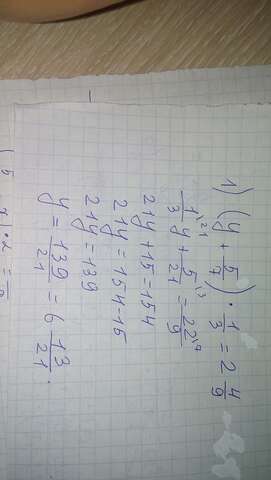 1) (y + 5/7) · 1/3 = 2 4/9
1/3 \21 y + 5/21 \3 = 22/9 \7
21y + 15 = 154
21y = 154 - 15
21y = 139
y = 139/21 = 6 13/21.